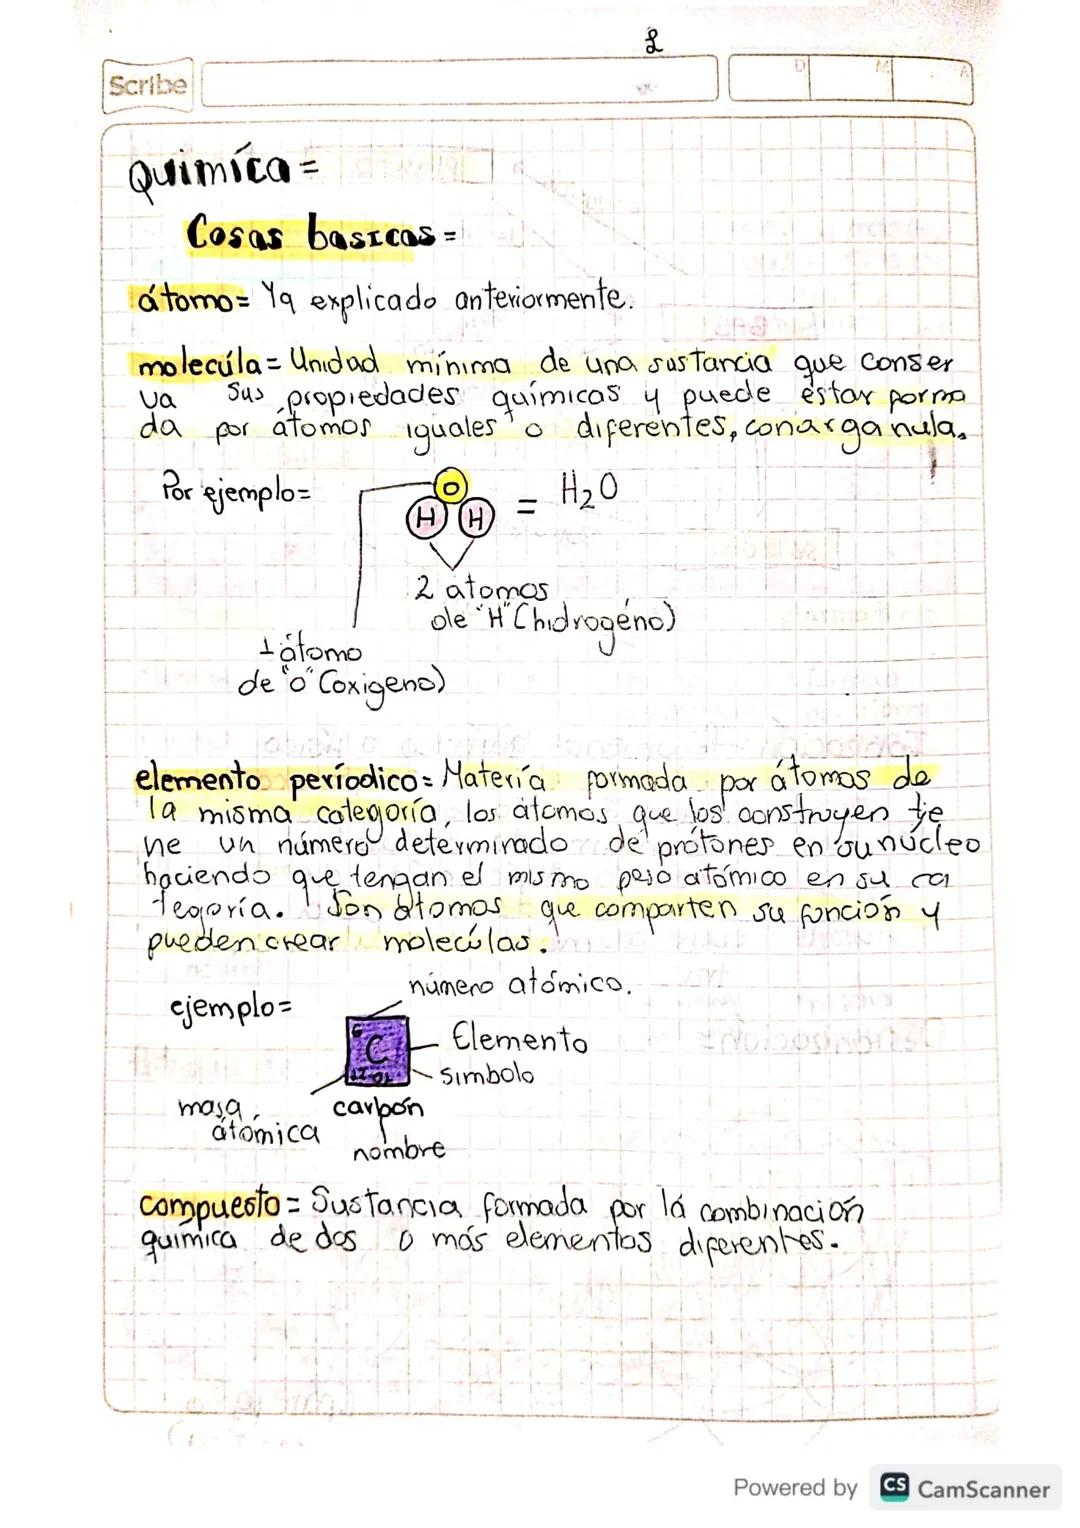 2
Scribe
D M A
Quimíca =
Cosas basicas =
átomo = Ya explicado anteriormente.
molecúla = Unidad mínima de una sustancia que conser
va sus propiedades químicas y puede estar forma
da por átomos iguales o diferentes, con carga nula.
Por ejemplo=
O
H H = H₂O
2 atomos
de "H" (hidrogéno)
1 átomo
de "O" (oxigeno)
elemento períodico = Matería formada por átomos de
la misma categoría, los átomos que los construyen tie
ne un número determinado de prótones en su núcleo
haciendo que tengan el mismo peso atómico en su ca
tegoría. Son átomos que comparten su función y
pueden crear molecúlas.
ejemplo=
número atómico.
6
C
12.01
Elemento
simbolo
masa
átomica
carbón
nombre
compuesto = Sustancia formada por lá combinación
química de dos o más elementos diferentes.
Powered by CS CamScanner